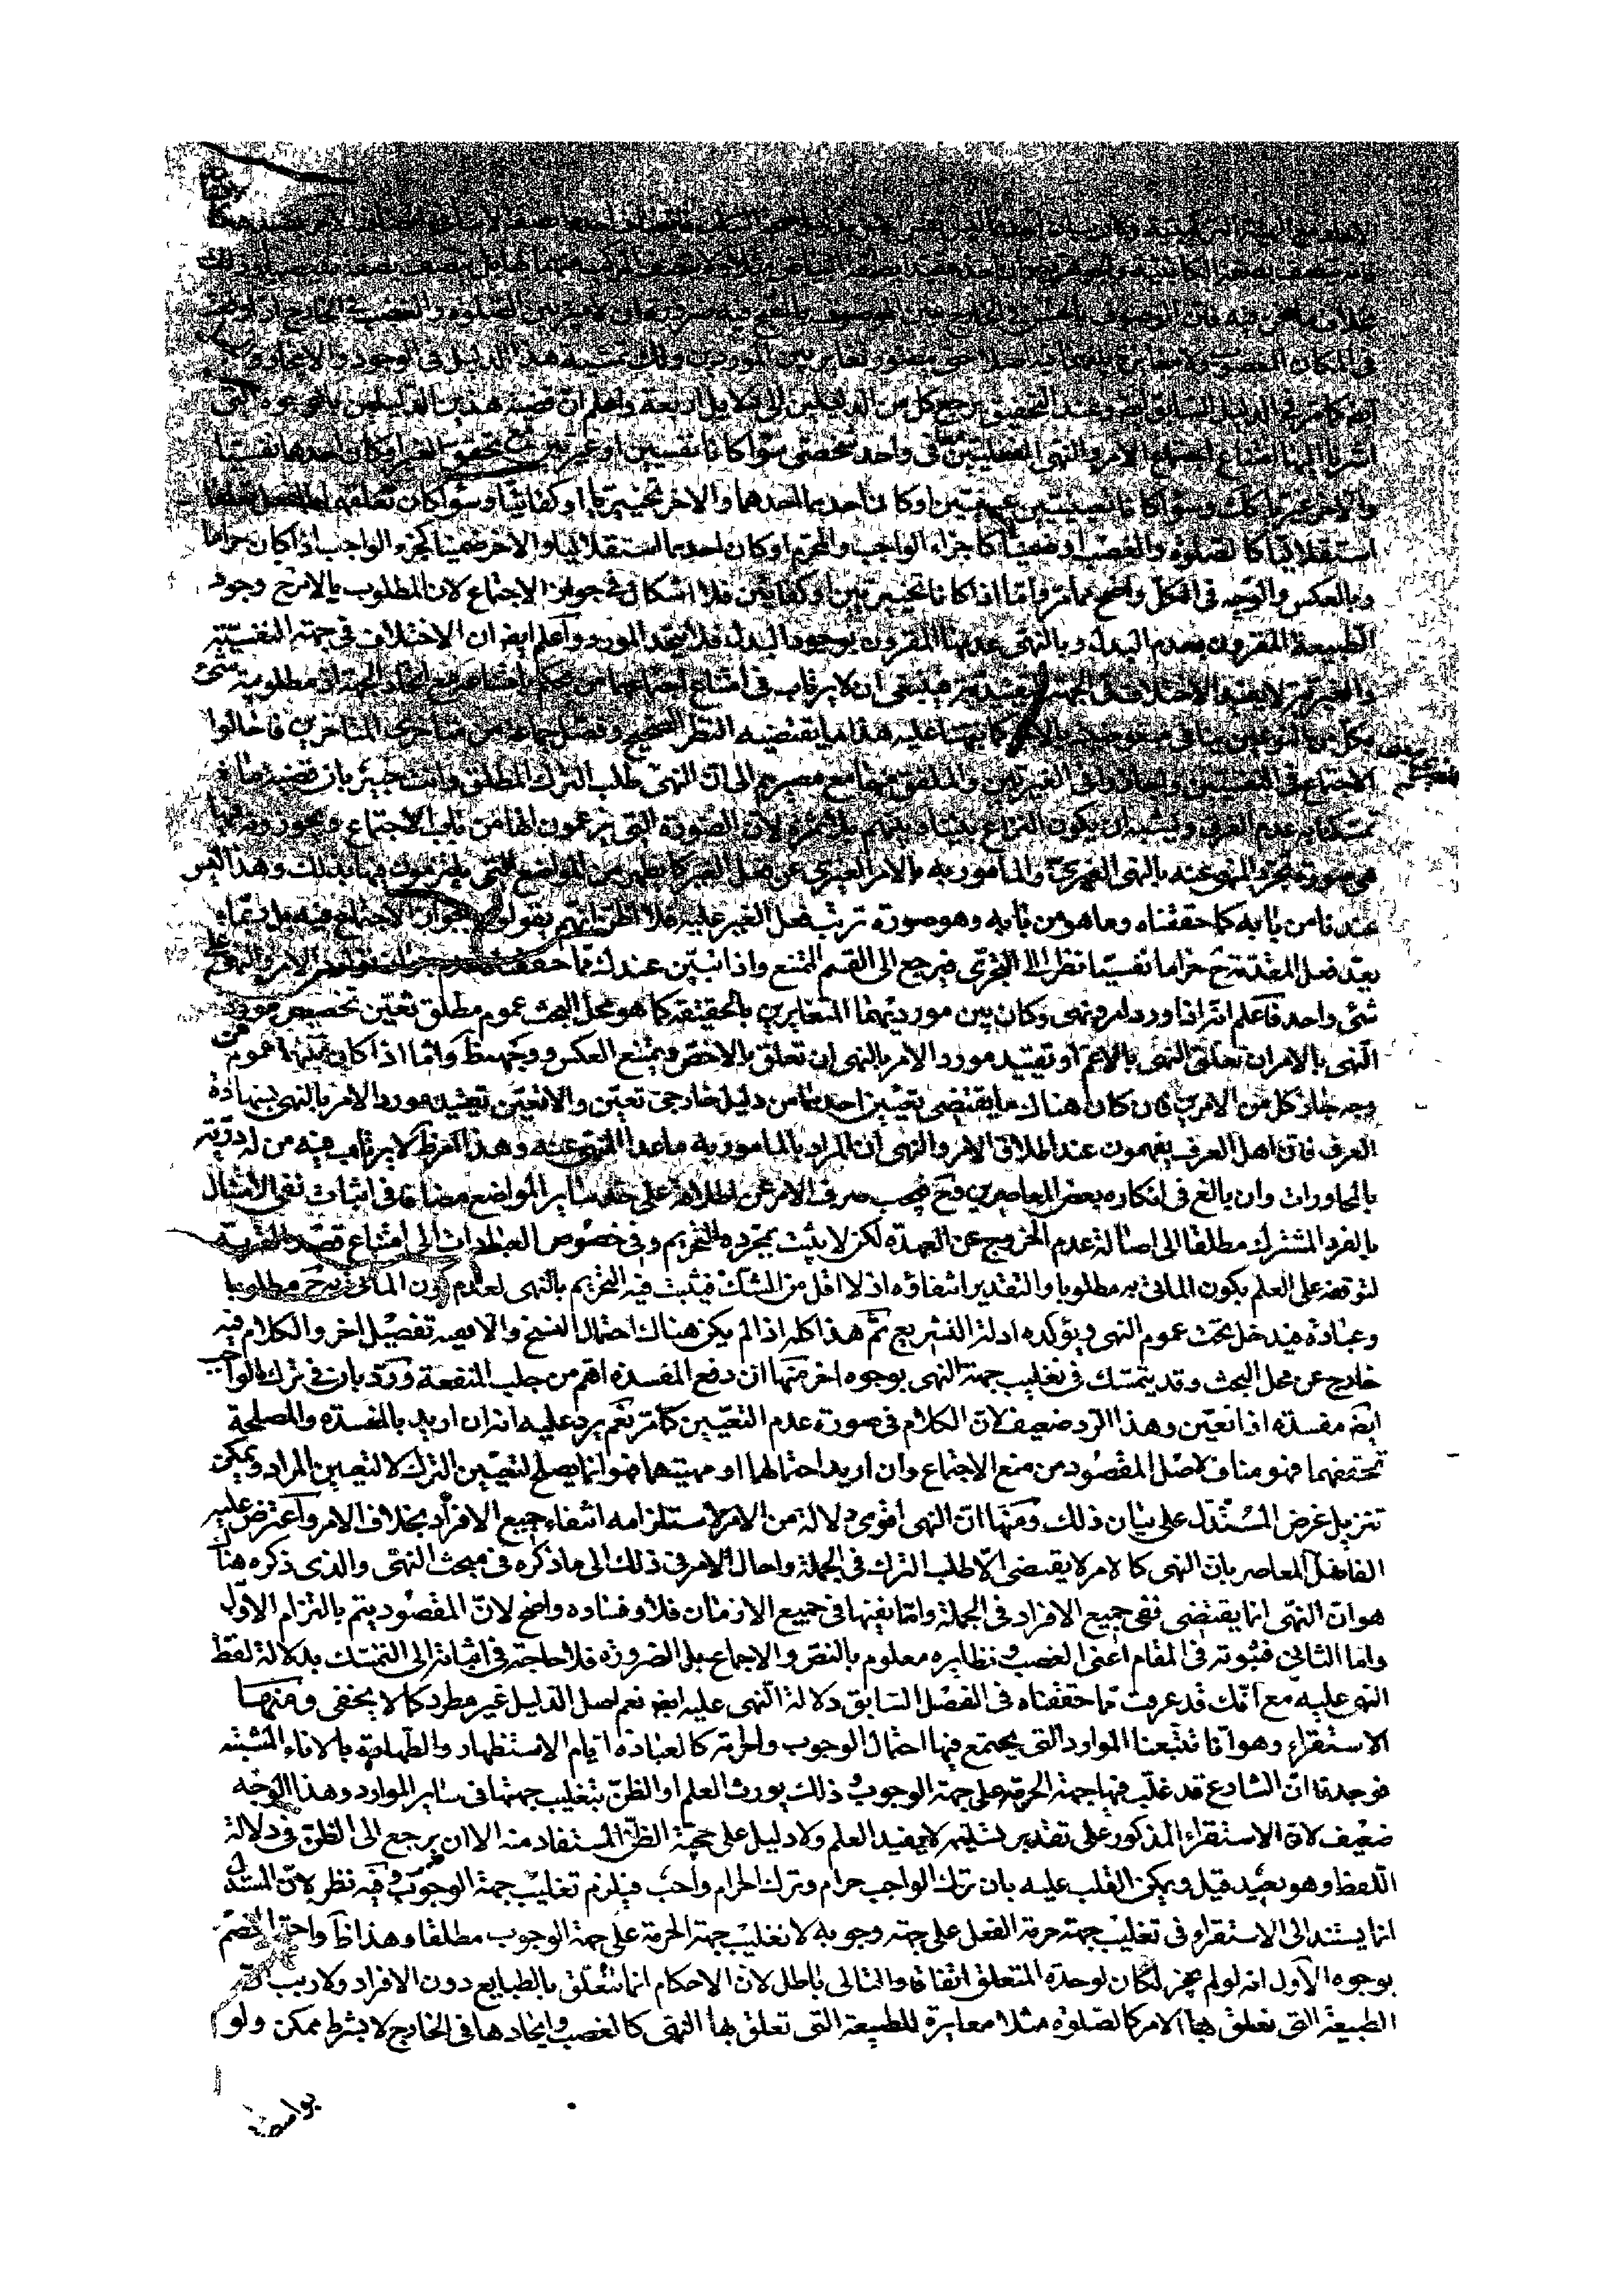 في المكان المغصوب ولا مغايرة بينهما فيه اصلا حتى يتصور تغاير بين الموردين ولك تمشية هذا الدليل في الوجود والايجاد
ايضا كما مر في الدليل السابق وعند التحقيق يرجع كل من الدليلين الى دلايل اربعة واعلم ان قضية هذين الدليلين بالوجوه التي
اشرنا اليها امتناع اجتماع الامر والنهي الفعليين في واحد شخصي سواء كانا نفسيين او غيريين مع تحقق الغير او كان احدهما نفسيا
والاخر غيريا كك وسواء كانا تعيينيين عينيين او كان احدهما احدهما والاخر تخييريا او كفائيا وسواء كان تعلقهما
استقلاليا كالصلوة والغصب او ضمنيا كاجزاء الواجب والمحرم او كان احدهما استقلاليا والاخر ضمنيا كجزء الواجب اذا كان حراما
وبالعكس والوجه في الكل واضح مما مر واما اذا كانا تخييريين او كفائيين فلا اشكال في جواز الاجتماع لان المطلوب بالامر ح وجود
الطبيعة المقرون بعدم البدل وبالنهي عدمها المقرون بوجود البدل فلا يتحد المورد واعلم ايضا ان الاختلاف في جهة النفسية
والغيرية لا يفيد الاختلاف في الجهة التقييدية فينبغي ان لا يرتاب في امتناع اجتماعهما من يحكم بامتناعه مع اتحاد الجهة اذ مطلوبية شئ
كما نبهنا عليه هذا ما يقتضيه النظر الصحيح وفصل جماعة من متاخري المتاخرين فاحالوا
الاجتماع في النفسيين واجازوا في الغيريين والملفق منهما مع مصيرهم الى ان النهي طلب الترك المطلق وانت خبير بان قضية ما
تمسكنا به عدم الفرق ويشبه ان يكون النزاع بيننا وبينهم بلا ثمرة لان الصورة التي يزعمون انها من باب الاجتماع ويجوزونه فيها
هي صورة تجرد المنهي عنه بالنهي الغيري والمامور به بالامر الغيري عن فعل الغير كما يظهر من المواضع التي يلتزمون فيها بذلك وهذا ليس
عندنا من بابه كما حققناه وما هو من بابه وهو صورة ترتب فعل الغير عليه فلا اظن انهم يقولون بجواز الاجتماع فيه بل ربما
يعد فعل المقدمة ح حراما نفسيا نظرا الى التجري فيرجع الى القسم الممتنع واذا تبين عندك مما حققناه عدم جواز توارد الامر والنهي على
شئ واحد فاعلم انه اذا ورد امر ونهي وكان بين مورديهما المتغايرين بالحقيقة كما هو محل البحث عموم مطلق تعين تخصيص مورد
النهي بالامر ان تعلق النهي بالاعم او تقييد مورد الامر بالنهي ان تعلق بالاخص ويمتنع العكس ووجهه ظ واما اذا كان بينهما عموم من
وجه جاز كل من الامرين فان كان هناك ما يقتضي تعيين احدهما من دليل خارجي تعين والا تعين تقييد مورد الامر بالنهي بشهادة
العرف فان اهل العرف يفهمون عند اطلاق الامر والنهي ان المراد بالمامور به ما عدا المنهي عنه وهذا الفرظ لا يرتاب فيه من له دربة
بالمحاورات وان بالغ في انكاره بعض المعاصرين وح فيجب صرف الامر عن اطلاقه على حد ساير المواضع مضافا في اثبات نفي الامتثال
بالفرد المشترك مطلقا الى اصالة عدم الخروج عن العهدة لكن لا يثبت بمجرده التحريم وفي خصوص العبادات الى امتناع قصد القربة
لتوقفه على العلم بكون الماتي به مطلوبا والتقدير انتفاؤه اذ لا اقل من الشك فيثبت فيه التحريم بالنهي لعدم كون الماتي به ح مطلوبا
وعبادة فيدخل تحت عموم النهي ويؤكده ادلة التشريع ثم هذا كله اذا لم يكن هناك احتمال النسخ والا ففيه تفصيل اخر والكلام فيه
خارج عن محل البحث وقد يتمسك في تغليب جهة النهي بوجوه اخر منها ان دفع المفسدة اهم من جلب المنفعة ورد بان في ترك الواجب
ايضا مفسدة اذا تعين وهذا الرد ضعيف لان الكلام في صورة عدم التعيين كما مر نعم يرد عليه انه ان اريد بالمفسدة والمصلحة
تحققهما فهو مناف لاصل المقصود من منع الاجتماع وان اريد احتمالهما او مهيتهما فهو انما يصلح لتعيين الترك لا لتعيين المراد ويمكن
تنزيل غرض المستدل على بيان ذلك ومنها ان النهي اقوى دلالة من الامر لاستلزامه انتفاء جميع الافراد بخلاف الامر واعترض عليه
الفاضل المعاصر بان النهي كالامر لا يقتضي الا طلب الترك في الجملة واحال الامر في ذلك الى ما ذكره في مبحث النهي والذي ذكره هناك
هو ان النهي انما يقتضي نفي جميع الافراد في الجملة واما نفيها في جميع الازمان فلا وفساده واضح لان المقصود يتم بالتزام الاول
واما الثاني فثبوته في المقام اعني الغصب ونظايره معلوم بالنص والاجماع بل الضرورة فلا حاجة في اثباته الى التمسك بدلالة لفظ
النهي عليه مع انك قد عرفت مما حققناه في الفصل السابق دلالة النهي عليه ايضا نعم اصل الدليل غير مطرد كما لا يخفى ومنها
الاستقراء وهو انا تتبعنا الموارد التي يجتمع فيها احتمال الوجوب والحرمة كالعبادة ايام الاستظهار والطهارة بالاناء المشتبه
فوجدنا ان الشارع قد غلب فيها جهة الحرمة على جهة الوجوب وذلك يورث العلم او الظن بتغليب جهتها في ساير الموارد وهذا الوجه
ضعيف لان الاستقراء المذكور على تقدير تسليمه لا يفيد العلم ولا دليل على حجية الظن المستفاد منه الا ان يرجع الى الظن في دلالة
اللفظ وهو بعيد قيل ويمكن القلب عليه بان ترك الواجب حرام وترك الحرام واجب فيلزم تغليب جهة الوجوب وفيه نظر لان المستدل
انما يستند الى الاستقراء في تغليب جهة حرمة الفعل على جهة وجوبه لا تغليب جهة الحرمة على جهة الوجوب مطلقا وهذا ظ واحتج الخصم
بوجوه الاول انه لو لم يجز لكان لوحدة المتعلق اتفاقا والتالي باطل لان الاحكام انما تتعلق بالطبايع دون الافراد ولا ريب ان
الطبيعة التي تعلق بها الامر كالصلوة مثلا مغايرة للطبيعة التي تعلق بها النهي كالغصب وايجادها في الخارج لا بشرط ممكن ولو